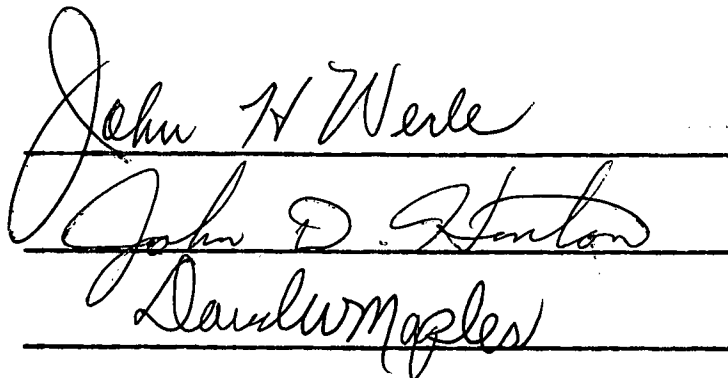 John H Werle
John D. Hinton
David W Maples